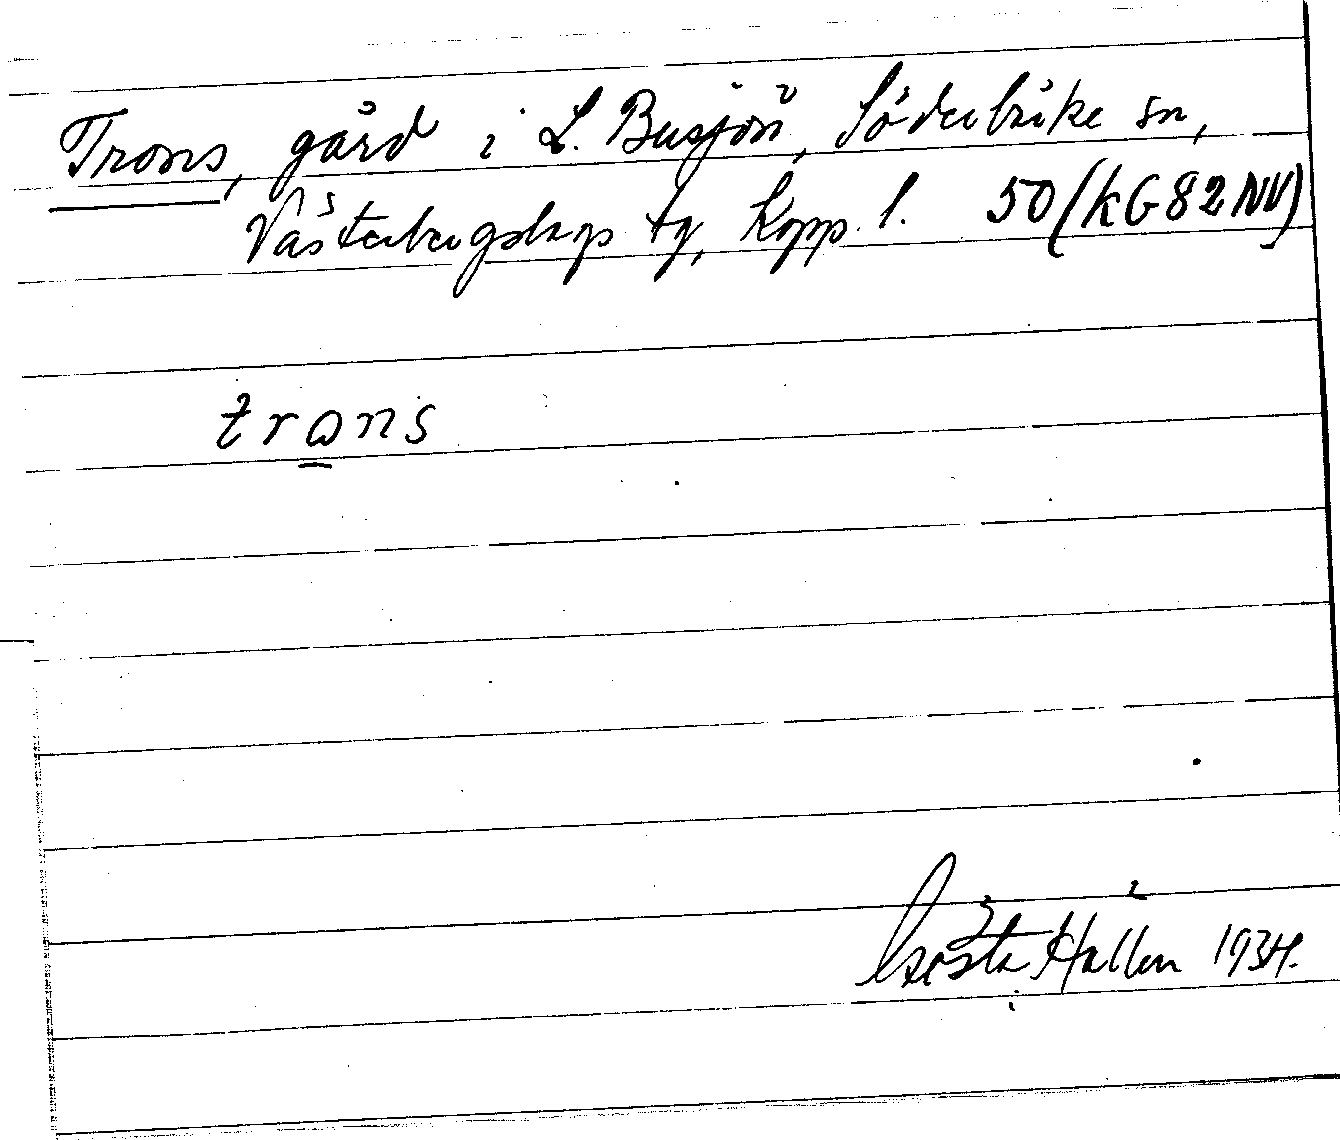 Trons, gård i L. Busjön, Söderbärke sn,
Västerbergslags tg, Kopp. l. 50 (kG 82 NV)
trans
Gösta Hallén 1934.